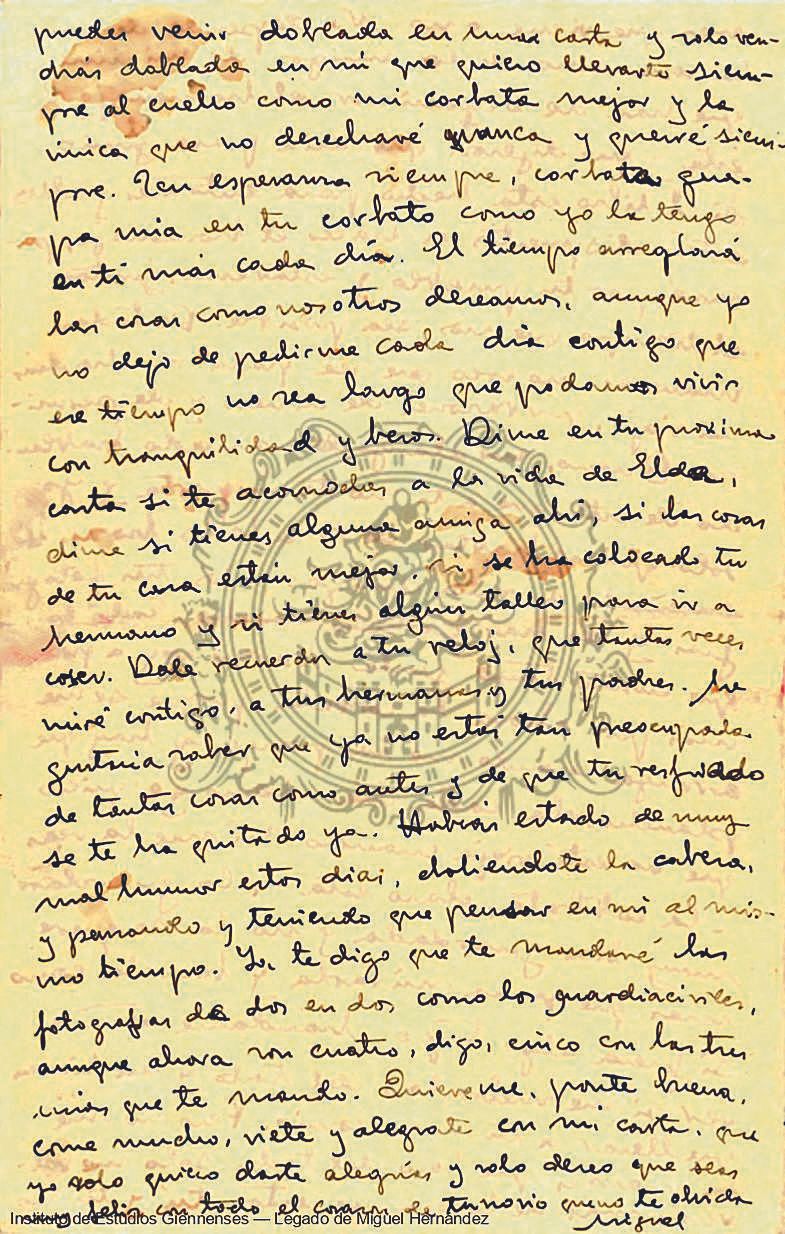 puedes venir doblada en una carta y solo ven-
drás doblada en mí que quiero llevarte siem-
pre al cuello como mi corbata mejor y la
única que no desecharé nunca y querré siem-
pre. Ten esperanza siempre, corbata gua-
pa mía en tu corbato como yo la tengo
en ti más cada día. El tiempo arreglará
las cosas como nosotros deseamos, aunque yo
no dejo de pedirme cada día contigo que
ese tiempo no sea largo que podamos vivir
con tranquilidad y besos. Dime en tu próxima
carta si te acomodas a la vida de Elda,
dime si tienes alguna amiga ahí, si las cosas
de tu casa están mejor, si se ha colocado tu
hermano y si tienes algún taller para ir a
coser. Dale recuerdos a tu reloj, que tantas veces
miré contigo, a tus hermanas y tus padres. Me
gustaría saber que ya no estás tan preocupada
de tantas cosas como antes y de que tu resfriado
se te ha quitado ya. Habrás estado de muy
mal humor estos días, doliéndote la cabeza,
y pensando y teniendo que pensar en mí al mis-
mo tiempo. Yo, te digo que te mandaré las
fotografías de dos en dos como los guardiaciviles,
aunque ahora son cuatro, digo, cinco con las tres
mías que te mando. Quiéreme, ponte buena,
come mucho, vístete y alégrate con mi carta, que
yo solo quiero darte alegrías y solo deseo que seas
muy feliz con todo el corazón de tu novio que no te olvida
Miguel
Instituto de Estudios Giennenses — Legado de Miguel Hernández